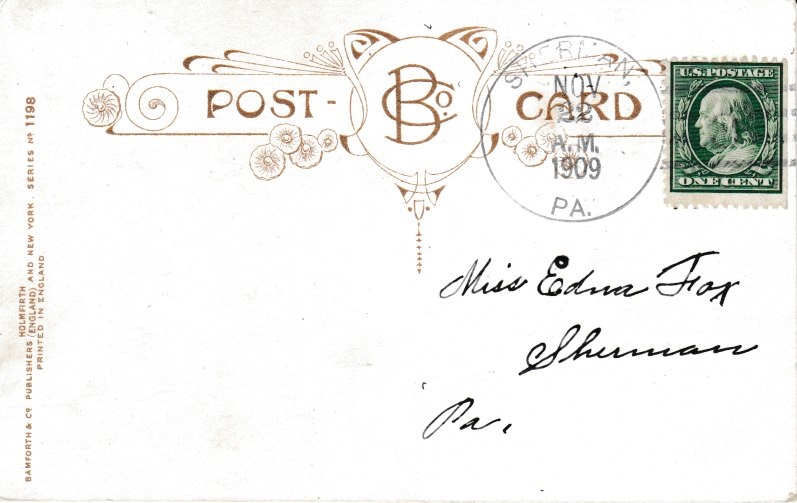 POST- BCo. CARD
SHERMAN,
NOV
22
A.M.
1909
PA.
U.S. POSTAGE
ONE CENT
Miss Edna Fox
Sherman
Pa.
BAMFORTH & Co. PUBLISHERS HOLMFIRTH (ENGLAND) AND NEW YORK. SERIES No 1198
PRINTED IN ENGLAND.